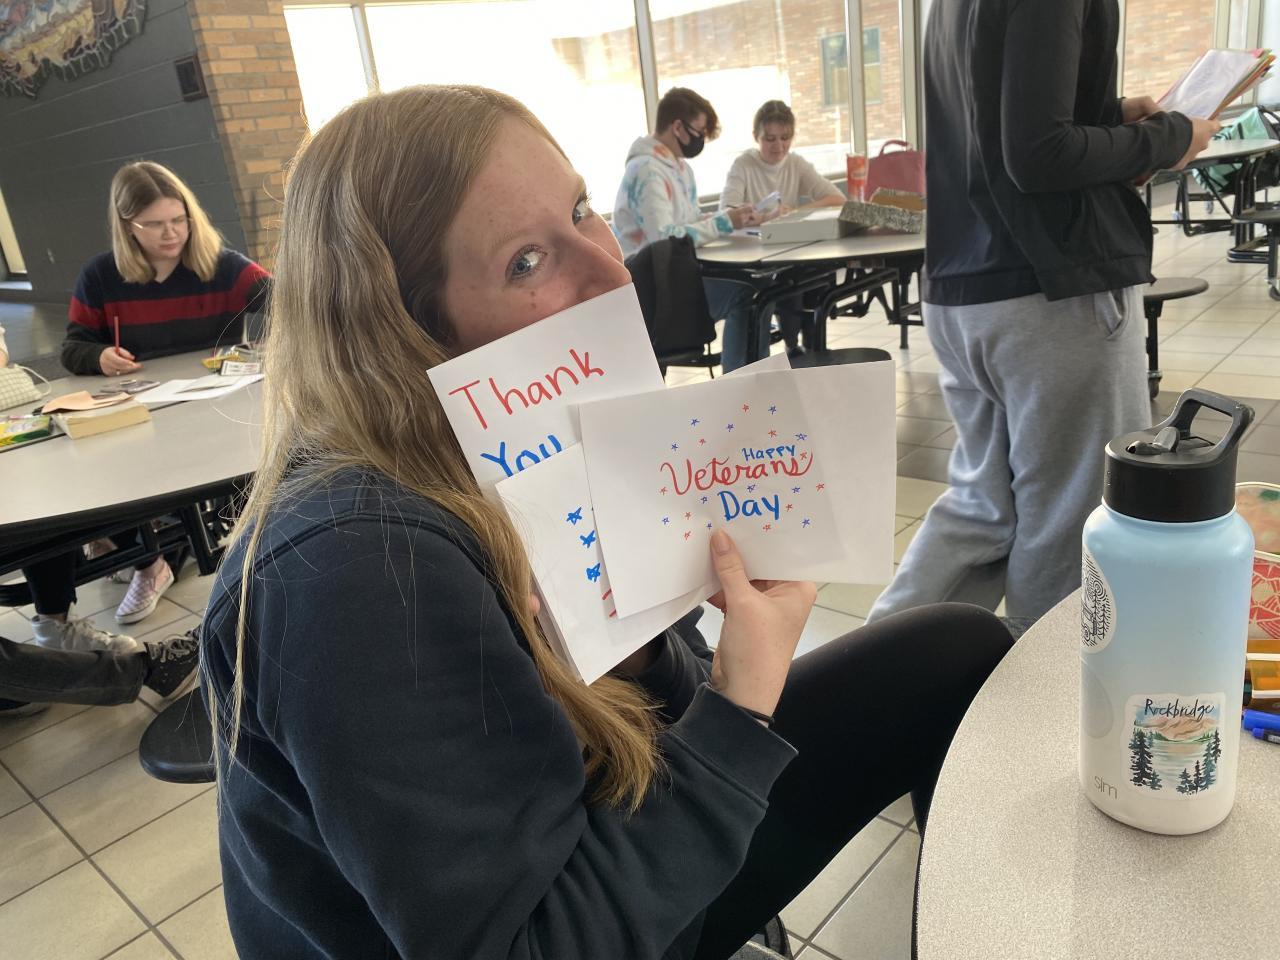 Thank
You
Happy
Veterans
Day
Rockbridge
slm